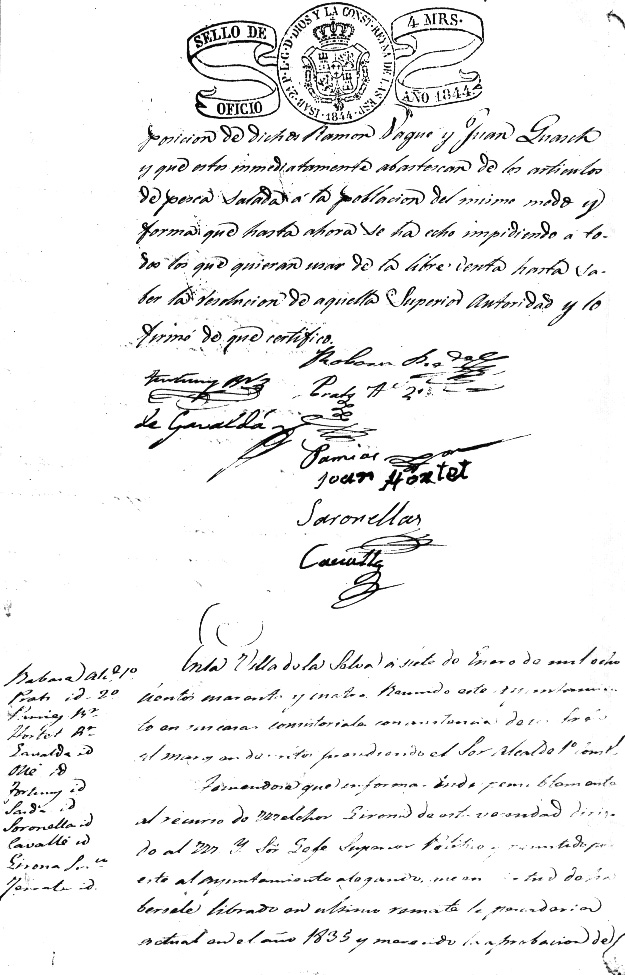 SELLO DE OFICIO
ISAB. 2ª P. L. G. D. DIOS Y LA CONST. REYNA DE LAS ESP. 1844
4 MRS. AÑO 1844
posicion de dichos Ramon Vaque y Juan Guasch
y que estos inmediatamente abastescan de los articulos
de pesca salada a la poblacion del mismo modo y
forma que hasta ahora se ha echo impidiendo a to-
dos los que quieran usar de la libre venta hasta sa-
ber la resolucion de aquella Superior Autoridad y lo
firmó de que certifico.
Prats Aᵉ 2º
de Gavaldá
Pamies
Joan Hortet
Soronellas
Cavallé
En la Villa de la Selva á siete de Enero de mil ocho
cientos cuarenta y cuatro Reunido este Ayuntamien-
to en sus casas consistoriales con asistencia de los Sres
al margen descritos presidiendo el Sor Alcalde 1º Const.
Barbará Alce 1º
Prats id 2º
Hortet Rr
Gavalda id
Ollé id
Fortuny id
Sardá id
Soronella id
Cavallé id
Girona
id
que informar
al recurso de Melchor Girona de esta vecindad dirigi-
do al M. Y. Sor Gefe Superior Politico y remitido por
este al Ayuntamiento alegando que en virtud de ha
bersele librado en ultimo remate la panaderia
actual en el año 1835 y merecido la aprobacion de